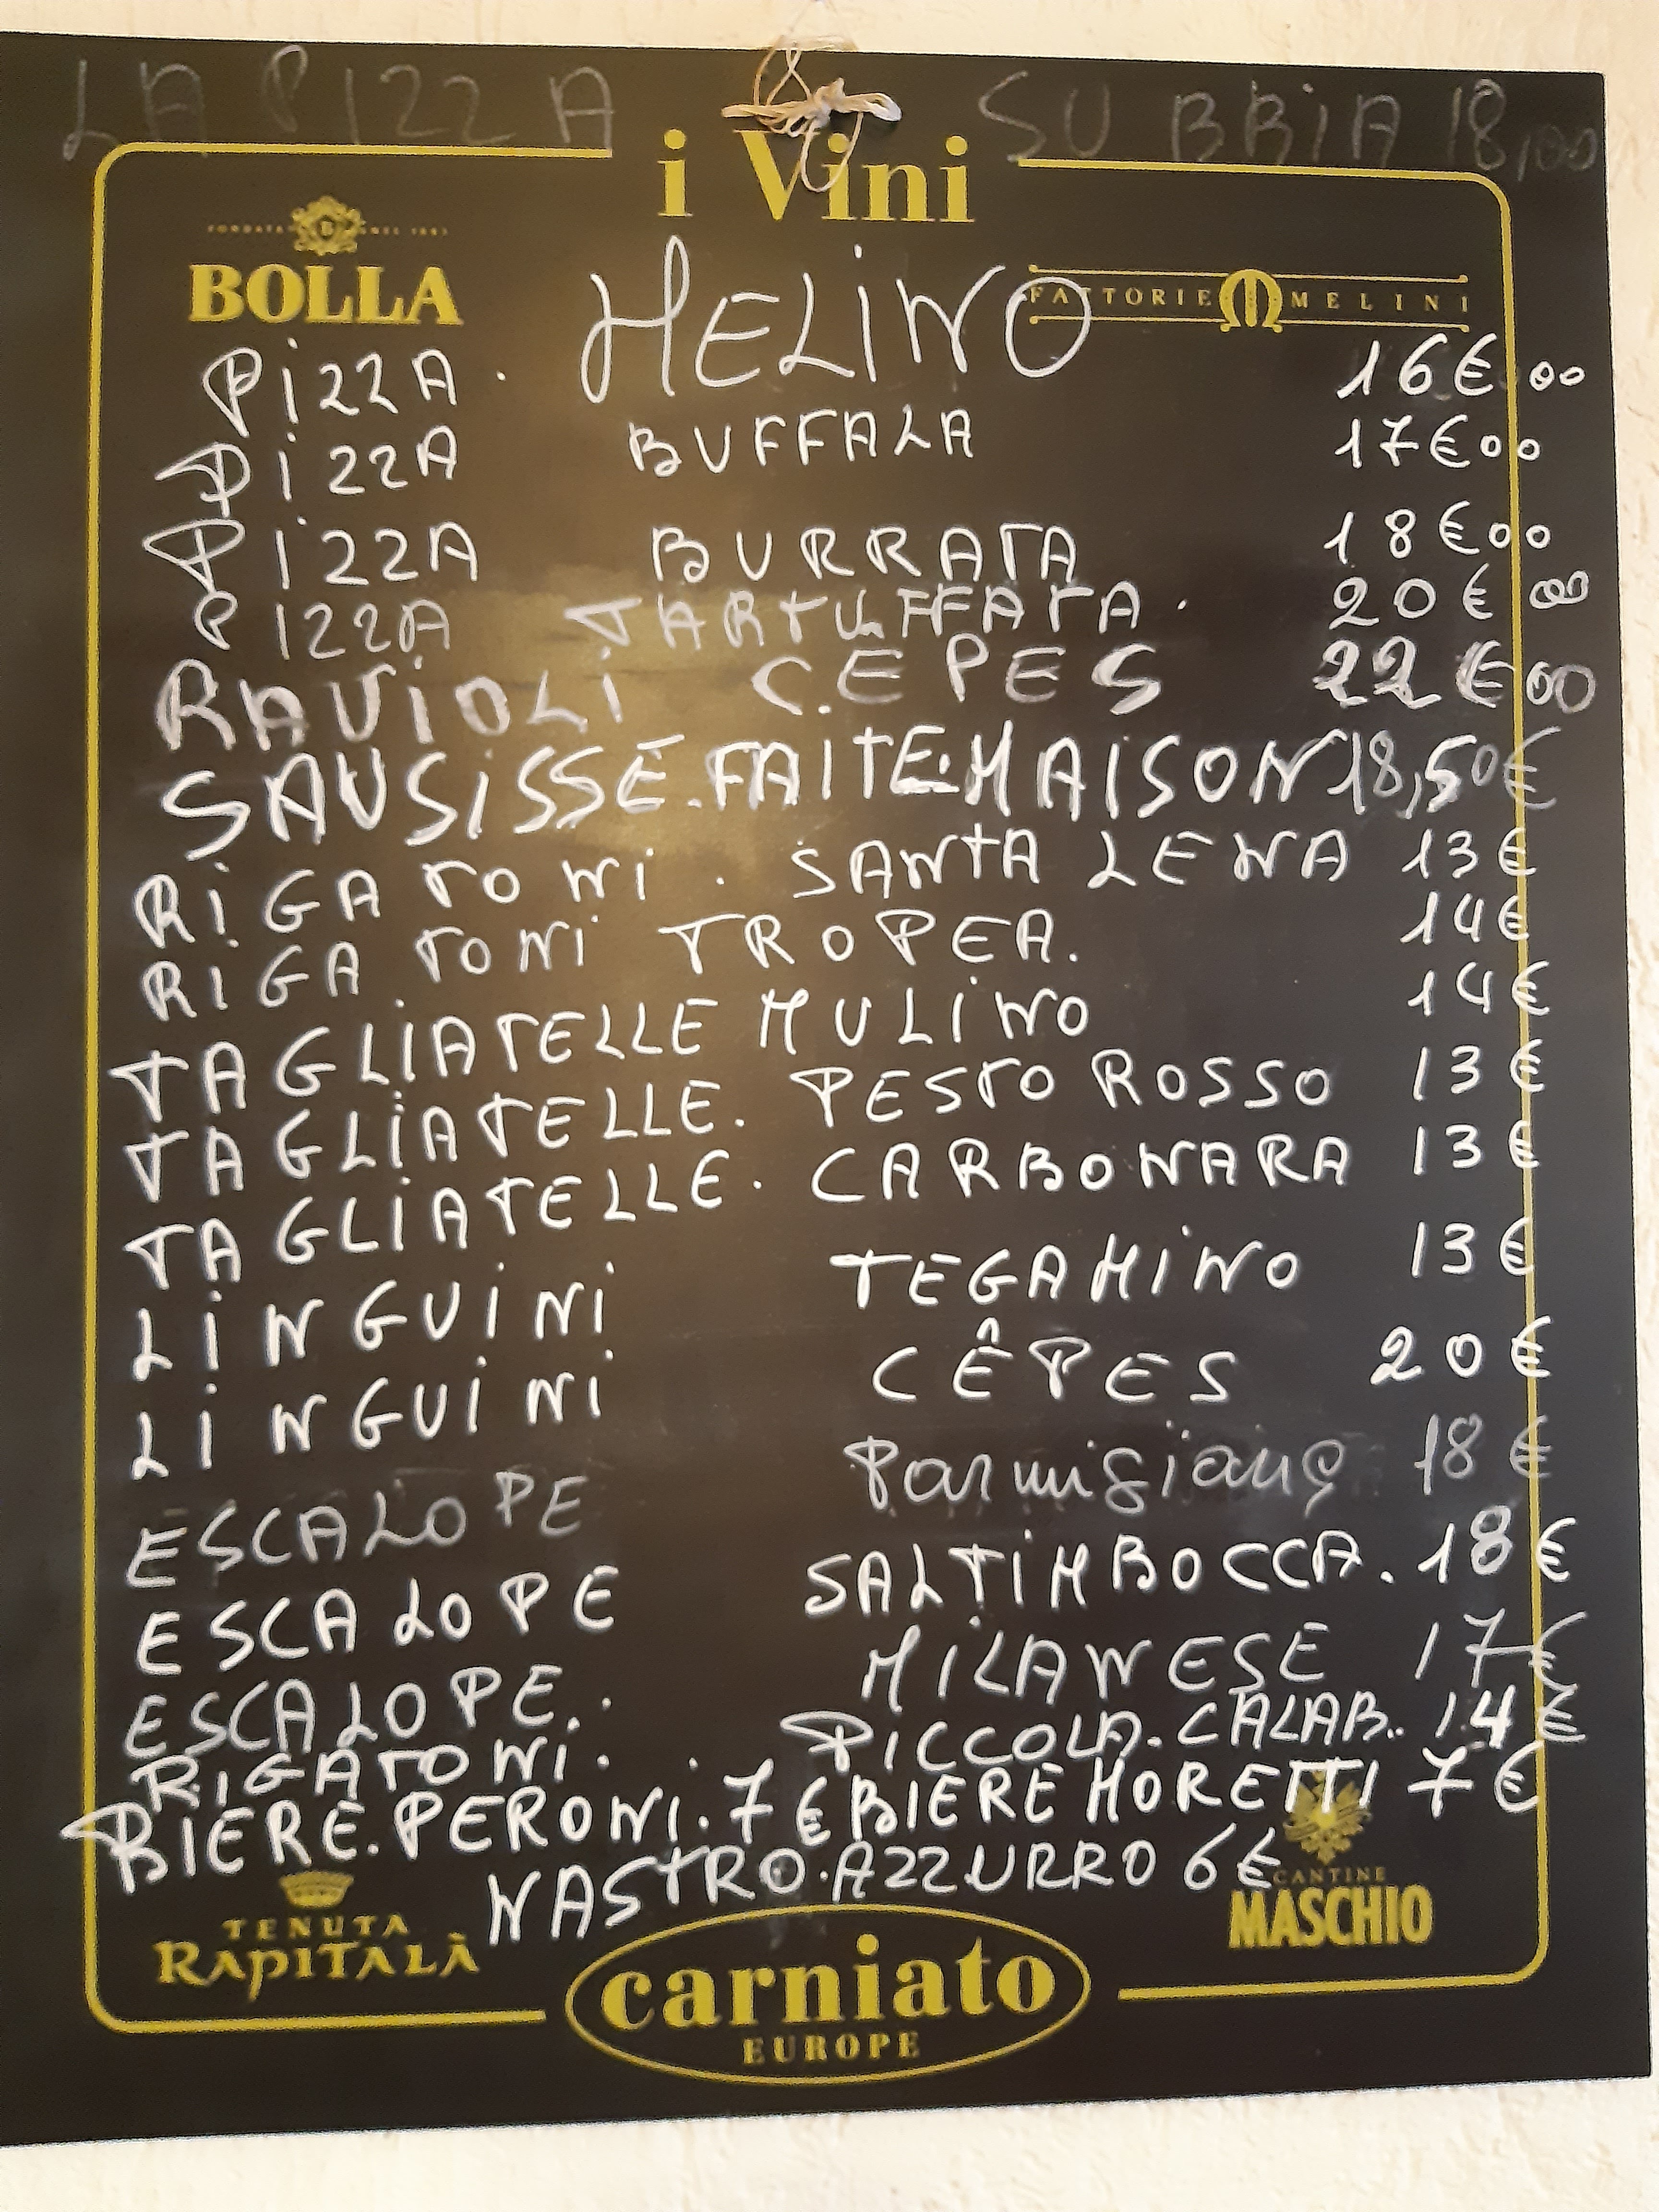 LA PIZZA SU BBIA 18,00
i Vini
FONDATA B NEL 1883
BOLLA
FATTORIE M MELINI
PIZZA. MELINO 16€00
PIZZA BUFFALA 17€00
PIZZA BURRATA 18€00
PIZZA TARTUFFATA. 20€00
RAVIOLI CEPES 22€00
SAUSISSE.FAITE.MAISON 18,50€
RIGATONI. SANTA LENA 13€
RIGATONI TROPEA. 14€
TAGLIATELLE MULINO 14€
TAGLIATELLE. PESTO ROSSO 13€
TAGLIATELLE. CARBONARA 13€
LINGUINI TEGAMINO 13€
LINGUINI CÊPES 20€
ESCALOPE Parmigiana 18€
ESCALOPE SALTIMBOCCA. 18€
ESCALOPE.. MILANESE 17€
RIGATONI. . PICCOLA.CALAB.. 14€
BIERE.PERONI.7€BIERE MORETTI 7€
NASTRO.AZZURRO 6€
TENUTA
RAPITALÀ
CANTINE
MASCHIO
carniato
EUROPE